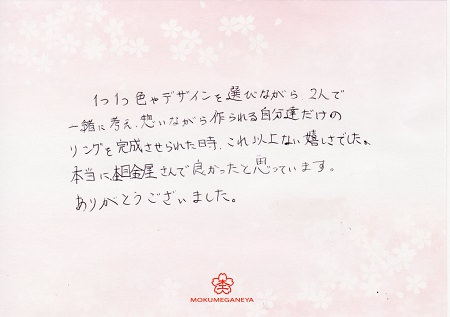 1つ1つ色やデザインを選びながら 2人で
一緒に考え、想いながら作られる自分達だけの
リングを完成させられた時、これ以上ない嬉しさでした。
本当に、杢目金屋さんで良かったと思っています。
ありがとうございました。
MOKUMEGANEYA